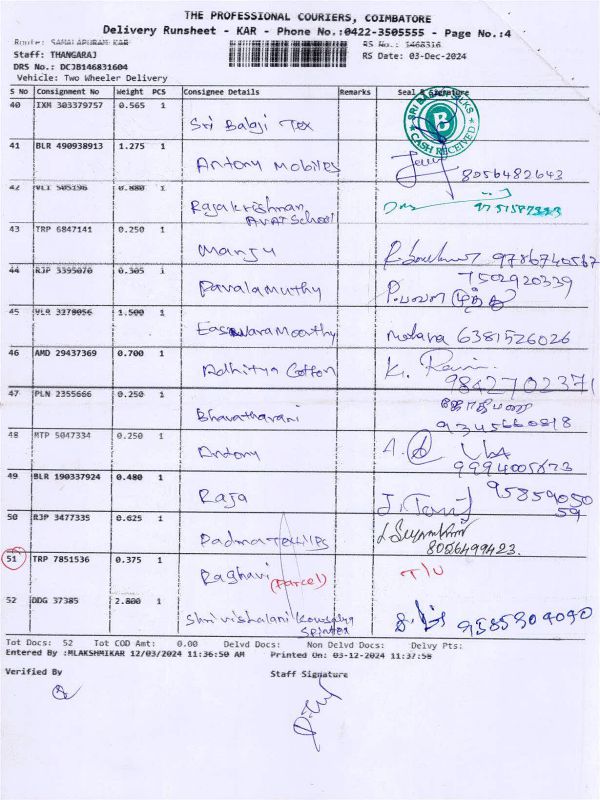 THE PROFESSIONAL COURIERS, COIMBATORE
Delivery Runsheet - KAR - Phone No.:0422-3505555 - Page No.:4
Route: SAMALAPURAM KAR RS No.: 1468316
Staff: THANGARAJ RS Date: 03-Dec-2024
DRS No.: DCJB146831604
Vehicle: Two Wheeler Delivery
S No Consignment No Weight PCS Consignee Details Remarks Seal & Signature
40 IXM 303379757 0.565 1 Sri Balaji Tex SRI BABA CASH RECEIVED B
41 BLR 490938913 1.275 1 Antony Mobiles 8056482643
42 VLI 505196 0.880 1 Rajakrishnan
AVAT School
43 TRP 6847141 0.250 1 Manju 9786740567
44 RJP 3395070 0.305 1 Pavalamuthy 7502920339
45 VLR 3278056 1.500 1 Easwaramoorthy malara 6381526026
46 AMD 29437369 0.700 1 Adhitya Cotton K.
9842702371
47 PLN 2355666 0.250 1 Bhavatharani 9345660818
48 MTP 5047334 0.250 1 Antony
9994005673
49 BLR 190337924 0.480 1 Raja 95859050
59
50 RJP 3477335 0.625 1 Padma Textiles
8056499423.
51 TRP 7851536 0.375 1 Raghavi (Parcel) T/U
52 DDG 37385 2.800 1 Shri vishalani Kowsalya
Sprintex 9585909090
Tot Docs: 52 Tot COD Amt: 0.00 Delvd Docs: Non Delvd Docs: Delvy Pts:
Entered By :MLAKSHMIKAR 12/03/2024 11:36:50 AM Printed On: 03-12-2024 11:37:58
Verified By Staff Signature